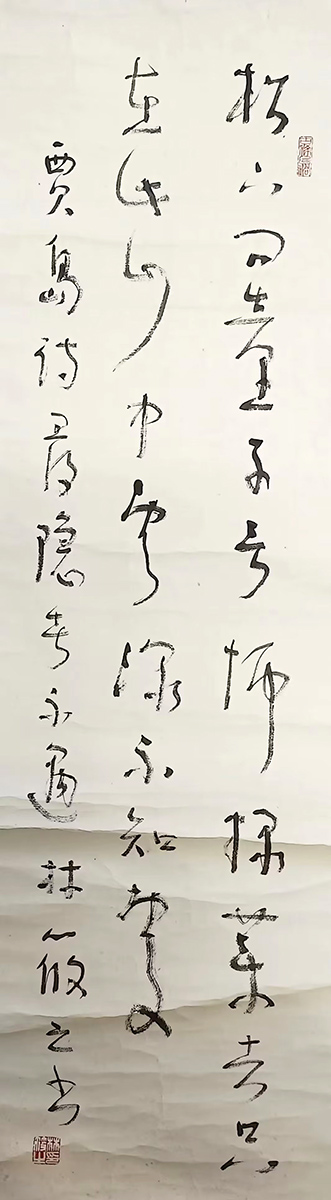 松下问童子言师採药去只
在此山中云深不知处
贾岛诗寻隐者不遇林筱之书